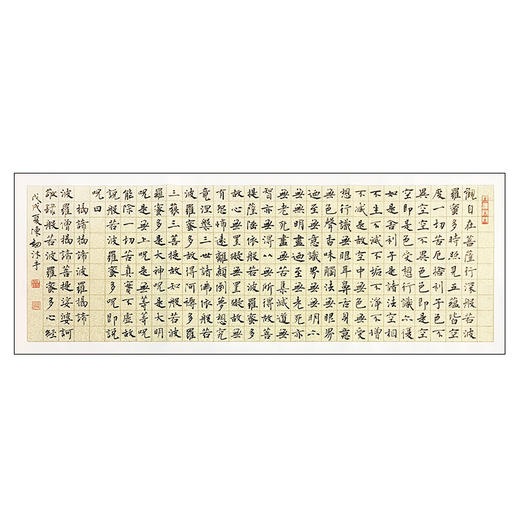 觀自在菩薩行深般若波
羅蜜多時照見五蘊皆空
度一切苦厄舍利子色不
異空空不異色色即是空
空即是色受想行識亦復
如是舍利子是諸法空相
不生不滅不垢不淨不增
不減是故空中無色無受
想行識無眼耳鼻舌身意
無色聲香味觸法無眼界
乃至無意識界無無明亦
無無明盡乃至無老死亦
無老死盡無苦集滅道無
智亦無得以無所得故菩
提薩埵依般若波羅蜜多
故心無罣礙無罣礙故無
有恐怖遠離顛倒夢想究
竟涅槃三世諸佛依般若
波羅蜜多故得阿耨多羅
三藐三菩提故知般若波
羅蜜多是大神呪是大明
呪是無上呪是無等等呪
能除一切苦真實不虛故
說般若波羅蜜多呪即說
呪曰
揭諦揭諦波羅揭諦
波羅僧揭諦菩提娑婆訶
敬錄般若波羅蜜多心經
戊戌夏陳